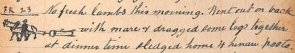 FR 23 No fresh lambs this morning. Went out on back
with mare & dragged some logs together
at dinner time sledged home 4 humaii posts